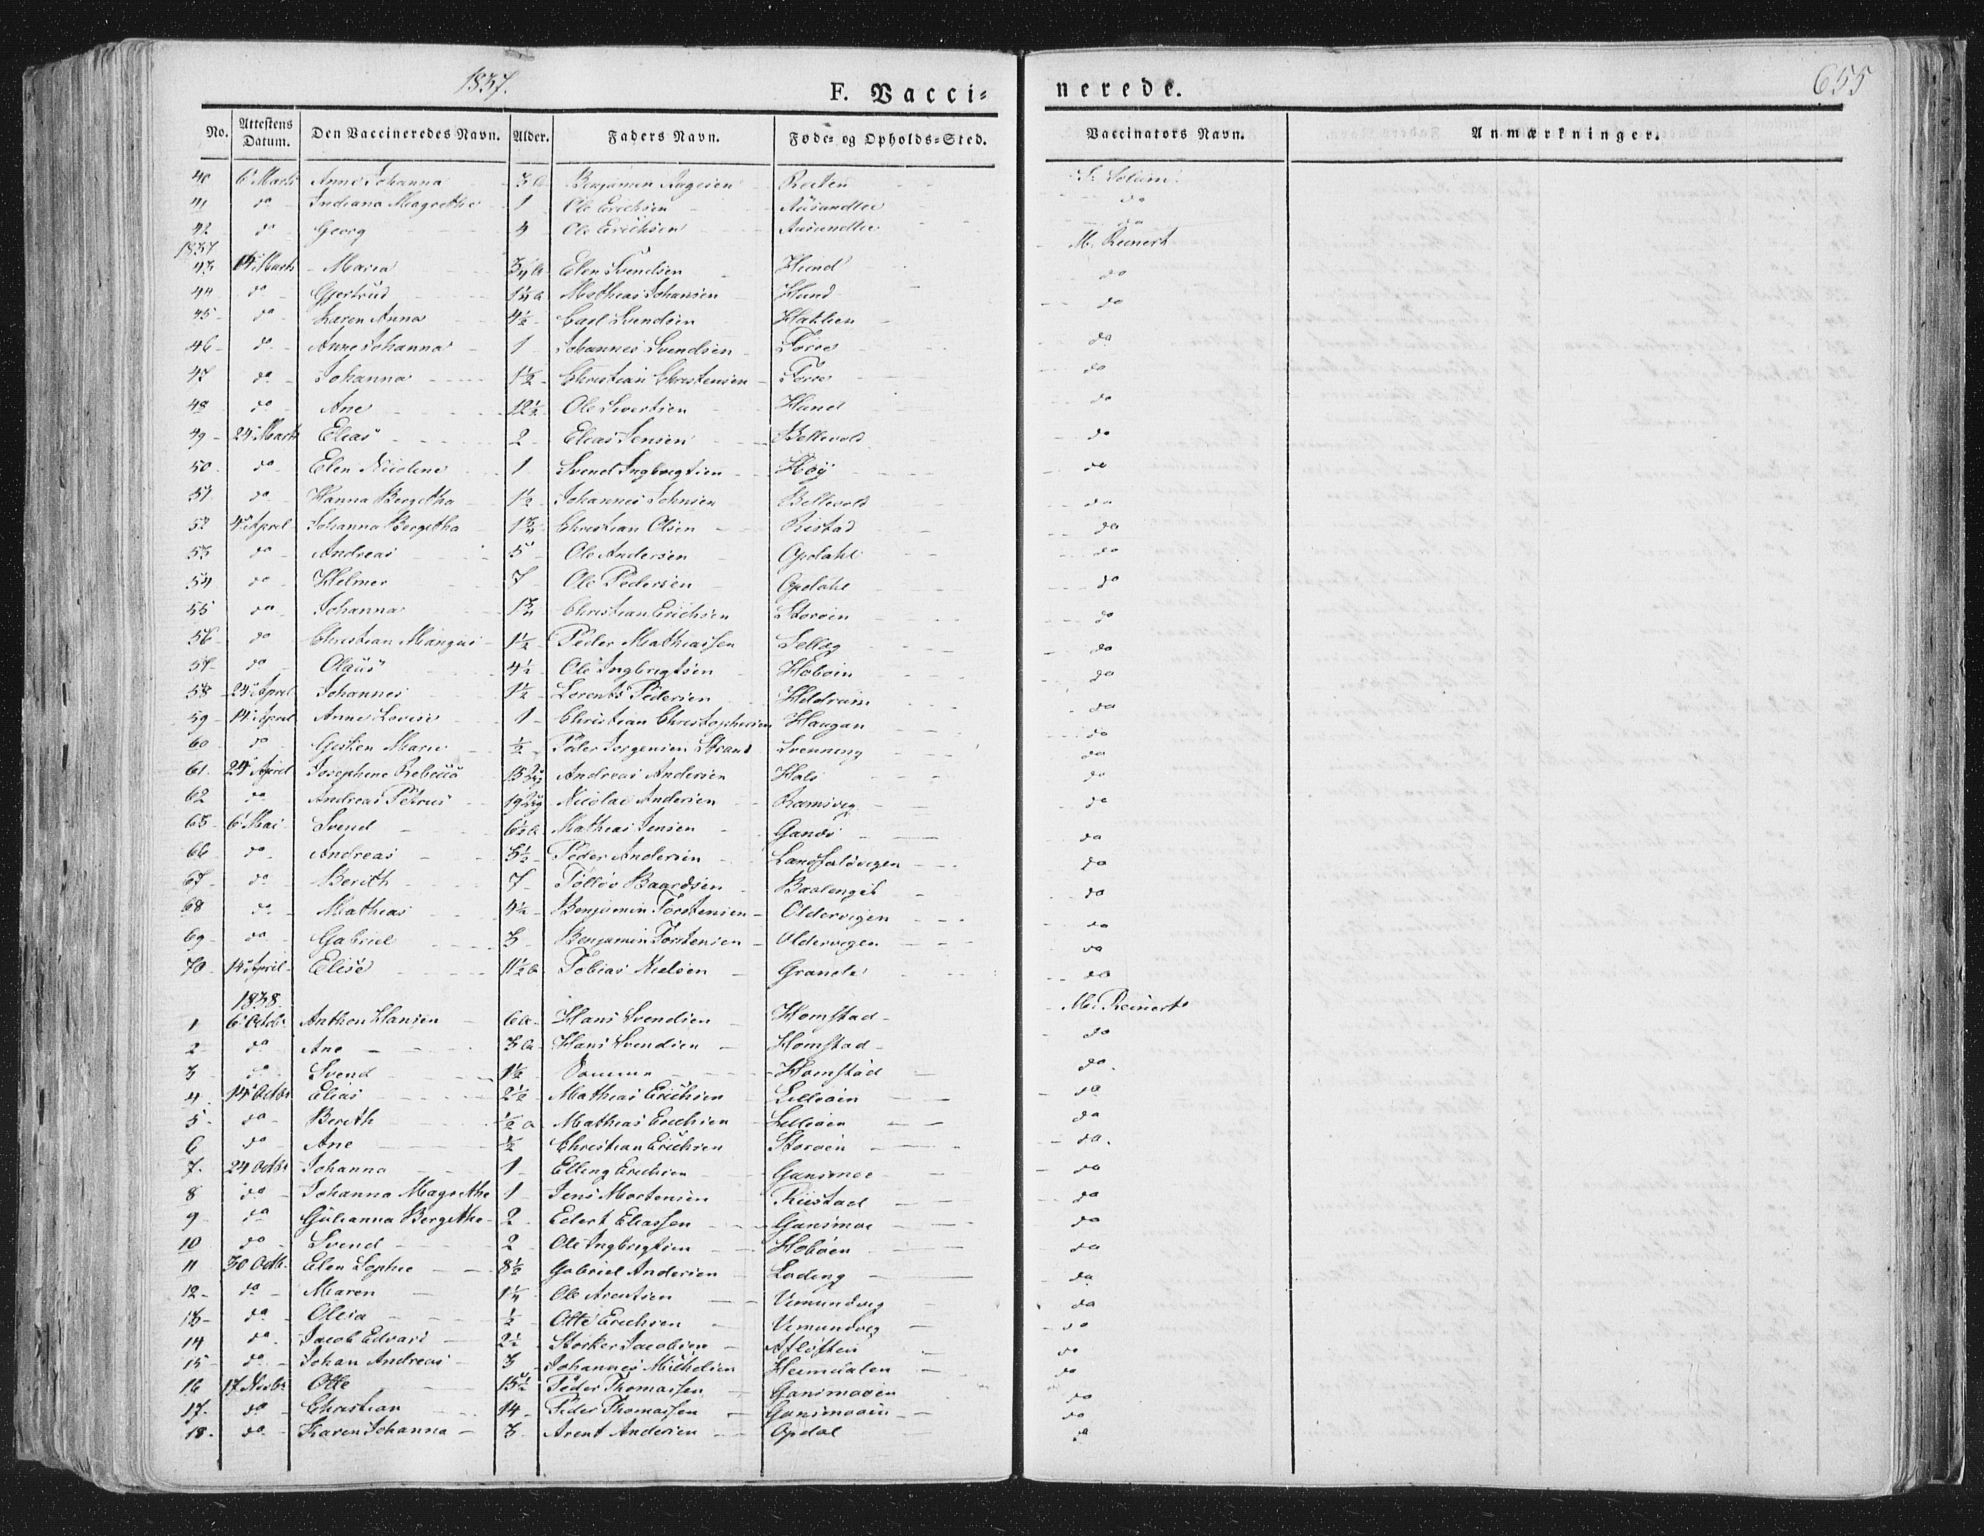 1837.
F. Vacci=nerede.
655
No. Attestens Datum. Den Vaccineredes Navn. Alder. Faders Navn. Føde- og Opholds-Sted. Vaccinators Navn. Anmærkninger.
40 6 Marts Anne Johanna 3 a Benjamin Aagesen Reiten S. Solum
41 do Indiana Magrethe 1 Ole Erichsen do
42 do Georg 4 Ole Erichsen do
1837 M. Reinert
43 14 Marts Maria 3/4 a Elen Svendsen Hund do
44 do Gjertrud 1 1/4 a Mathias Johansen Hund do
45 do Karen Anna 4 1/2 Carl Svendsen
46 do Anne Johanna 1 Johannes Svendsen Forre do
47 do Johanna 1 1/2 Christian Christensen Forre do
48 do Ane 12 1/2 Ole Sivertsen Hund do
49 24 Marts Elias 2 Elias Jensen Bellevold do
50 do Elen Nicoline 1 Svend Ingbregtsen Høÿ do
51 do Hanna Bergitha 1 1/2 Johannes Johnsen Bellevold do
52 4 April Johanna Bergitha 1 3/4 Christian Olsen Reistad do
53 do Andreas 5 Ole Andersen Opdahl do
54 do Helmer 7 Ole Pedersen Opdahl do
55 do Johanna 1 3/4 Christian Erichsen Storøen do
56 do Christian Mangus 1 1/2 Peder Mathiassen Sellæg do
57 do Olaus 4 1/2 Ole Ingbregtsen Høbøen do
58 24 April Johannes 1 1/2 Lorents Pedersen Hildrum do
59 14 April Anne Lovise 1 Christian Christophersen Haugan do
60 do Marie 1/2 Peder Jørgensen Strand Svenning do
61 24 April Josephine Rebecca 15 Andreas Andersen Hals do
62 do Andreas Petrus 19 Nicolai Andersen Ramsvig do
65 6 Mai Svend 6 1/2 a Mathias Jensen do
66 do Andreas 3 1/2 Peder Andersen Landfaldvigen do
67 do Berith 7 Tølløv Baardsen do
68 do Mathias 4 1/2 Benjamin Torstensen Oldervigen do
69 do Gabriel 3 Benjamin Torstensen Oldervegen do
70 14 April Elise 11 1/2 a Tobias Nielsen Grande do
1838. M. Reinert
1 6 Octbr Anthon Hansen 6 a Hans Svendsen Homstad
2 do Ane 3 a Hans Svendsen Homstad do
3 do Svend 1 1/2 Samme Homstad do
4 14 Octbr Elias 2 1/2 Mathias Erichsen Lilleøen do
5 do Berith 1/2 a Mathias Erichsen Lilleøen do
6 do Ane 1/2 Christian Erichsen Storøen do.
7 24 Octbr Johanna 1 Elling Erichsen Gansmoe do
8 do Johanna Magrethe 1 Jens Mortensen Reistad do
9 do Gulianna Bergithe 2 Edert Eliassen Gansmoe do
10 do Svend 2 Ole Ingbregtsen Høbøen do
11 30 Octb. Elen Sophie 8 1/2 Gabriel Andersen Lading do
12 do Maren 1 1/4 Ole Arentsen Vemundvig do
13 do Olisa 1/2 Otte Erichsen Vemundvig do
14 do Jacob Edvard 2 1/2 Størker Jacobsen Afløften do
15 do Johan Andreas 3 Johannes Michelsen Heimdalen do
16 17 Novbr Otte 15 1/2 Peder Thomassen Gansmoøen do
17 do Christian 14 Peder Thomassen Gansmoøen do
18 do Karen Johanna 3 Arent Andersen Opdal